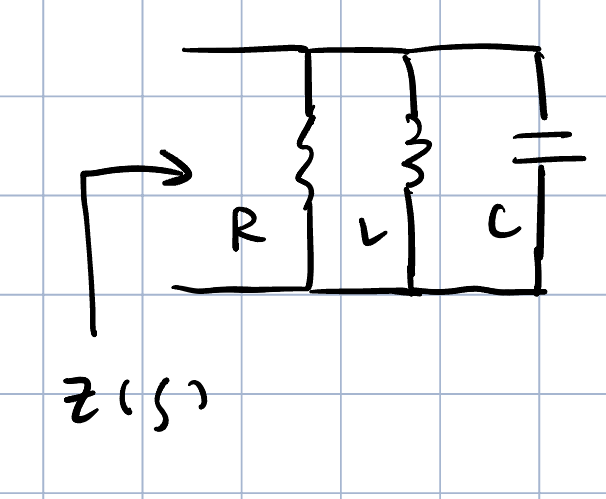 R L C
Z(s)